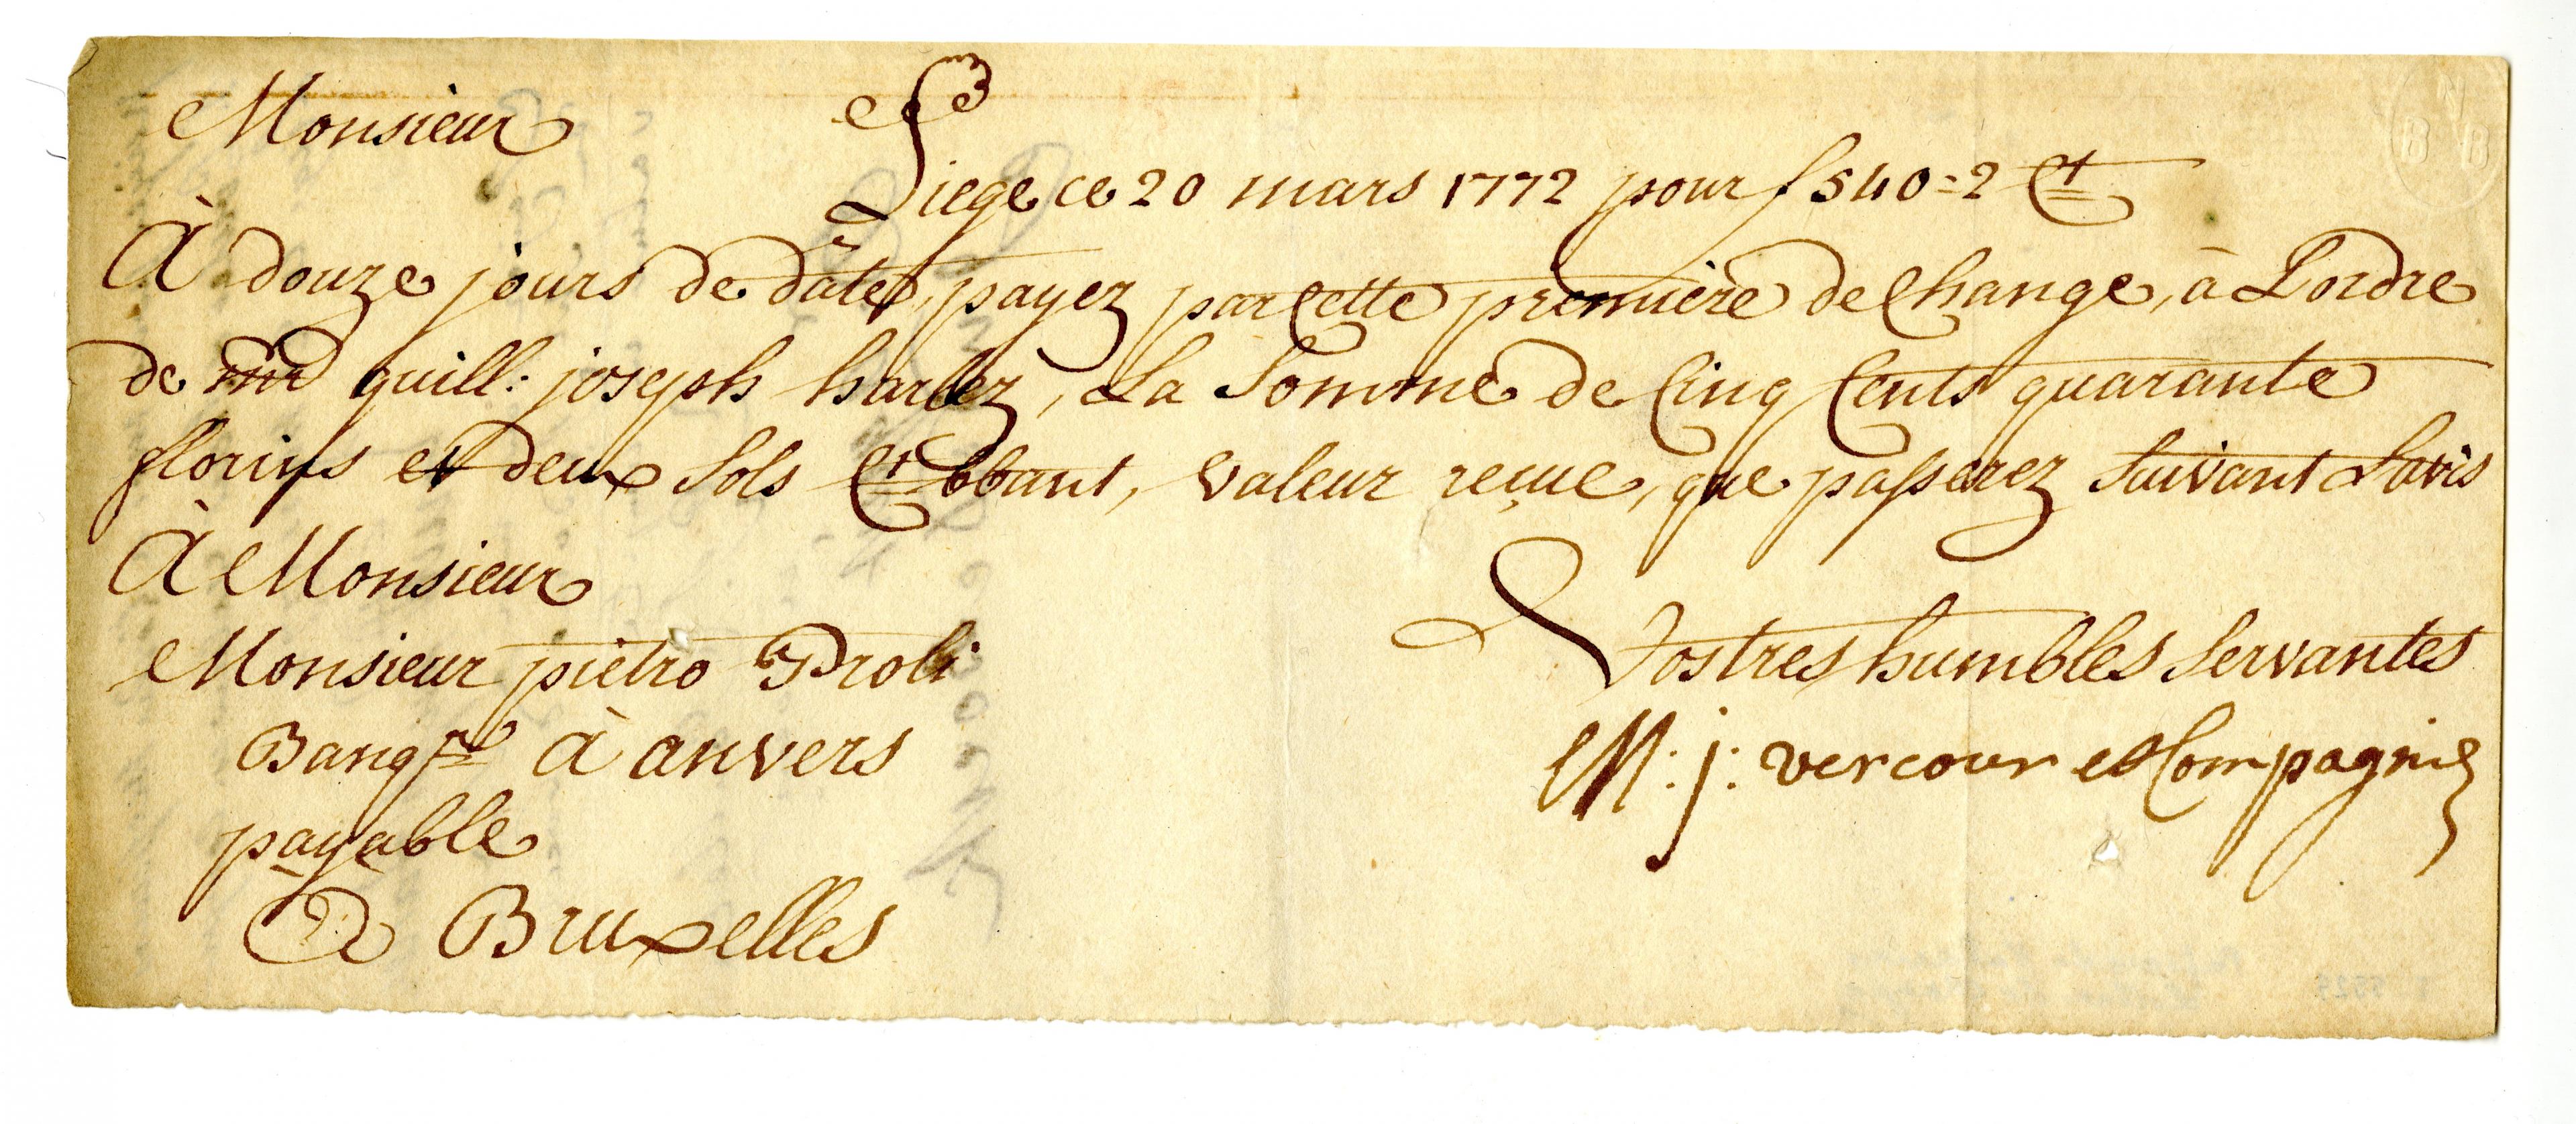 Monsieur
Liege ce 20 mars 1772 pour f 540=2 Ct
À douze jours de dâte, payez par Cette première de Change, à Lordre
de mr guill: joseph harlez, La Somme de Cinq Cents quarante
florins et deux Sols Ct bbant, valeur reçue, que passerez Suivant Lavis
À Monsieur
Monsieur pietro Proli
Banqre à anvers
payable
à Bruxelles
Vostres humbles Servantes
M: j: vercour et Compagnie
N
B B